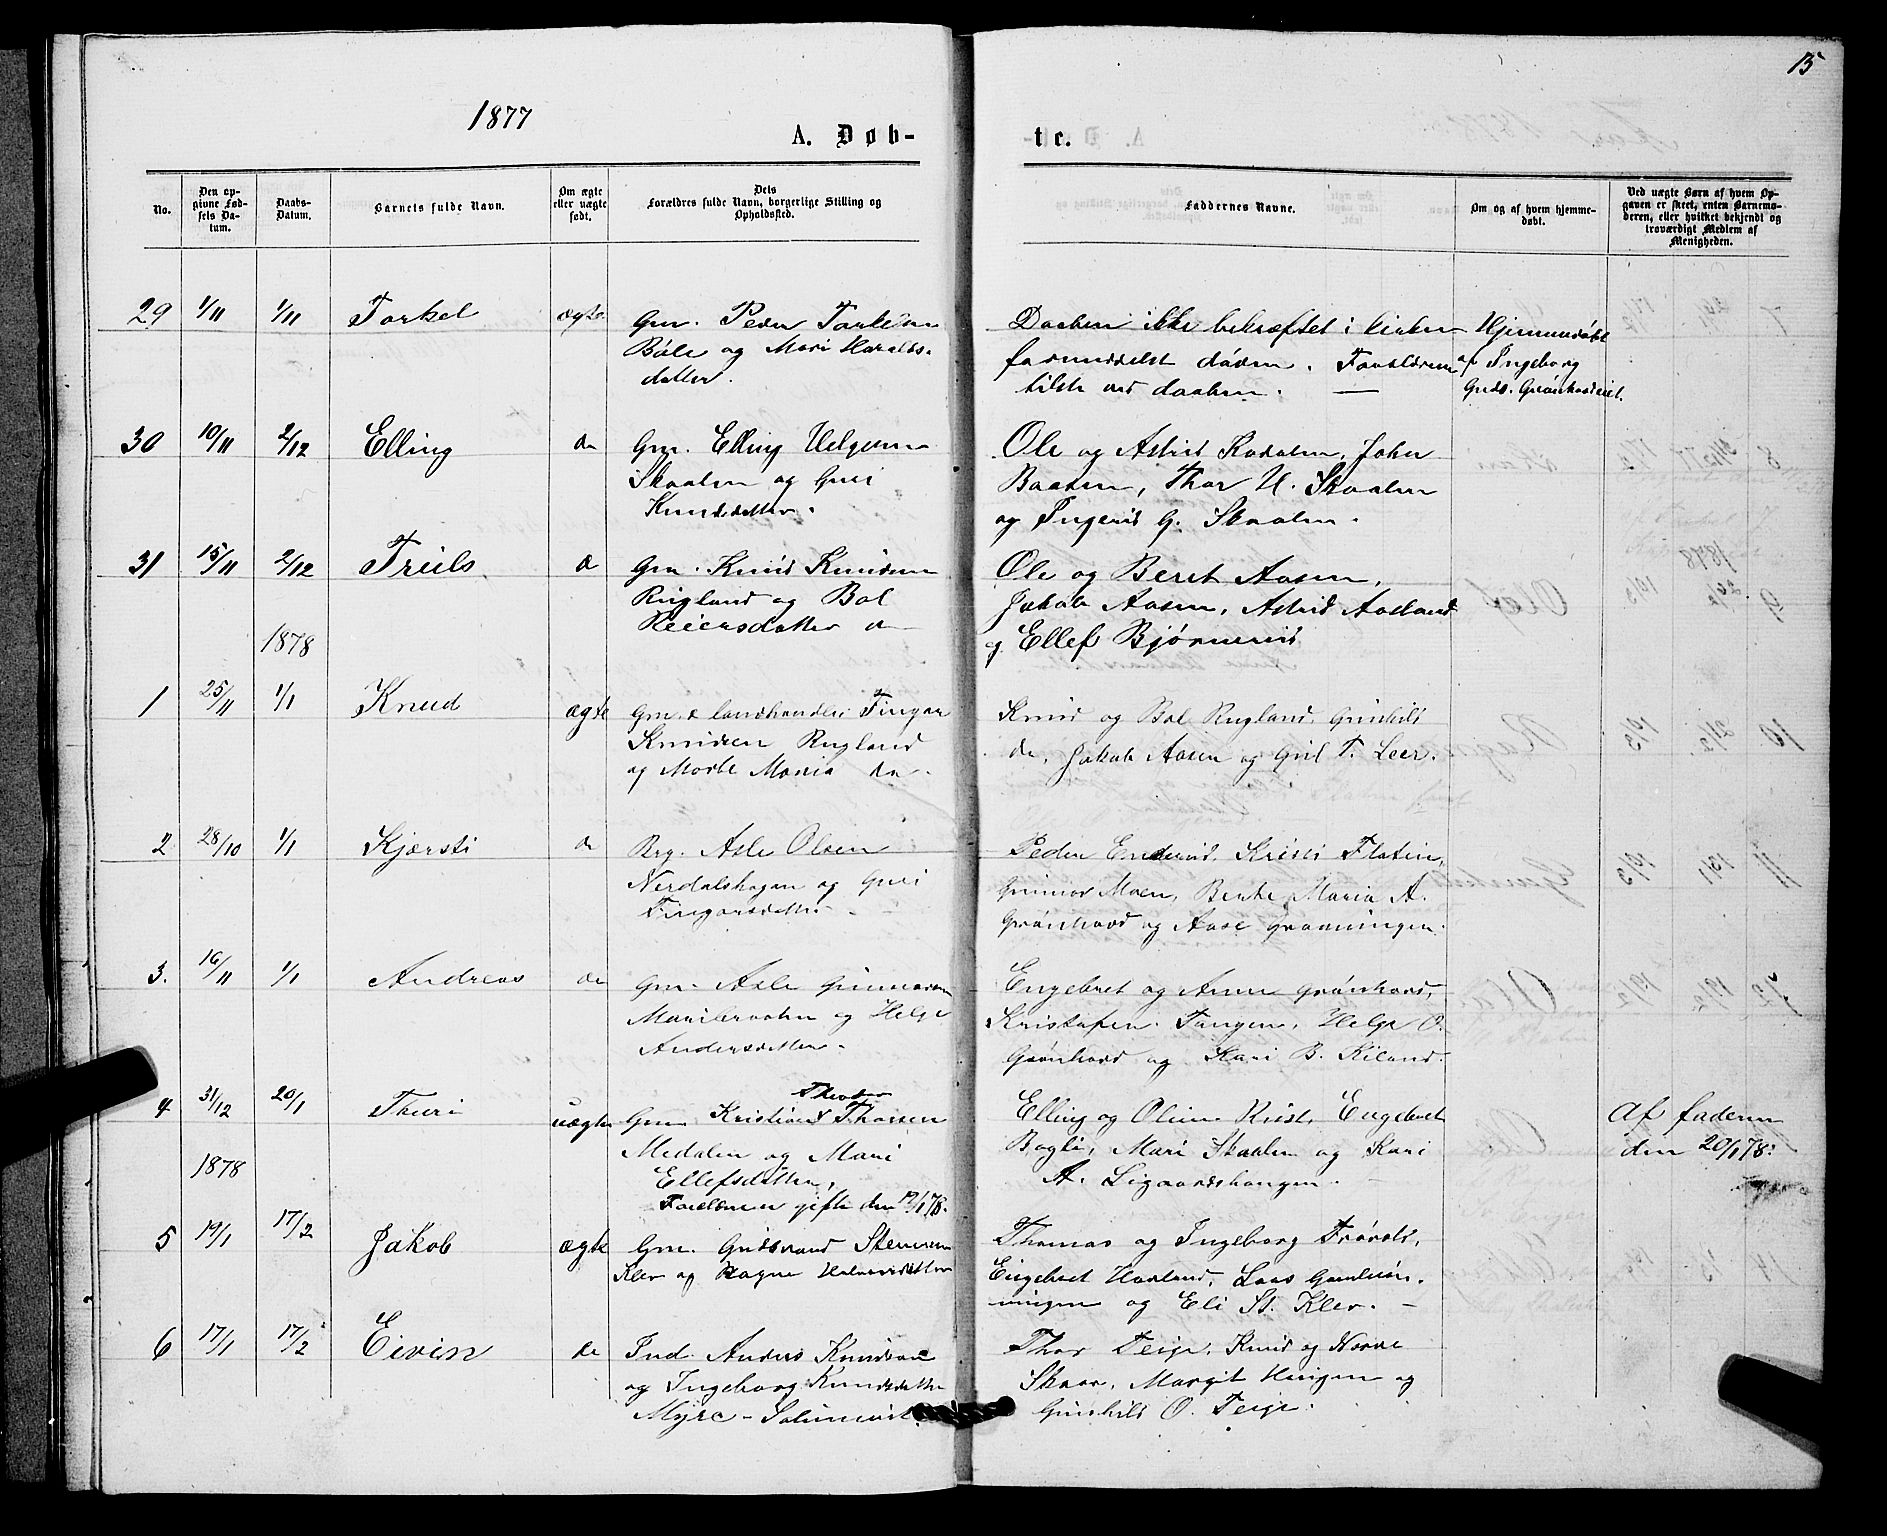 15
1877
A. Døb-
te.
No.
Den op-
givne Fød-
sels Da-
tum.
Daabs-
Datum.
Barnets fulde Navn.
Om ægte
eller uægte
født.
Dets
Forældres fulde Navn, borgerlige Stilling og
Opholdssted.
Faddernes Navne.
Om og af hvem hjemme-
døbt.
Ved uægte Børn af hvem Op-
gaven er skeet, enten Barnemo-
deren, eller hvilket bekjendt og
troværdigt Medlem af
Menigheden.
29 1/11 1/11 Torkel ægte
Gm. Peder Torkelsen
Böle og Mari Haralds-
datter.
Daaben ikke bekræftet i kirken
formedelst döden. Forældrene
tilste ved daaben. —
Hjemmedöbt
af Ingeborg
Guds. Grönhovdeiet.
30 10/11 2/12 Elling do
Gm. Elling Helgesen
Skaalen og Guri
Knudsdatter.
Ole og Astrid Rodalen, John
Baaten, Thor H. Skaalen
og Ingerid G. Skaalen.
31 15/11 2/12 Truls do
Gm. Knud Knudsen
Rugland og Bol
Reiersdatter do
Ole og Beret Aasen,
Jakob Aasen, Astrid Aasland
og Ellef Bjørnerud
1878
1 25/11 1/1 Knud ægte
Gm. & landhandler Fingar
Knudsen Rugland
og Marte Maria do.
Knud og Bol Rugland, Gunhild
do, Jakob Aasen og Guri T. Leer.
2 28/10 1/1 Kjærsti do
Brg. Asle Olsen
Nerdalshagan og Guri
Fingarsdatter.
Peder Enderud, Kristi Flaten,
Gunnor Moen, Berte Maria A.
Grönhovd og Aase Gronningen.
3. 16/11 1/1 Andreas do
Gm. Asle Gunnarsen
og Helge
Andersdatter.
Engebret og Anne Grönhovd,
Kristofer Tangen, Helge O.
Grönhovd og Kari B. Kiland.
4 31/12 20/1 Thuri uægte
Theodor
Gm. Kristian Thorsen
Medalen og Mari
Ellefsdatter,
Forældrene gifte den 19/1 78.
Elling og Oline Rust, Engebret
Bagli, Mari Skaalen og Kari
A. Ligaardshaugen.
Af faderen
den 20/1 78.
1878
5 19/1 17/2 Jakob ægte
Gm. Gudbrand Stenersen
Klev og Ragne Halvorsdatter
Thomas og Ingeborg Frövold,
Engebret Havland, Lars
og Eli St. Klev. —
6 17/1 17/2 Eivin do
Ind. Anders Knudsen
og Ingeborg Knudsdatter
Myre - Solumeiet.
Thor Teige, Knud og
Skaar, Margit Haugen og
Gunhild O. Teige.